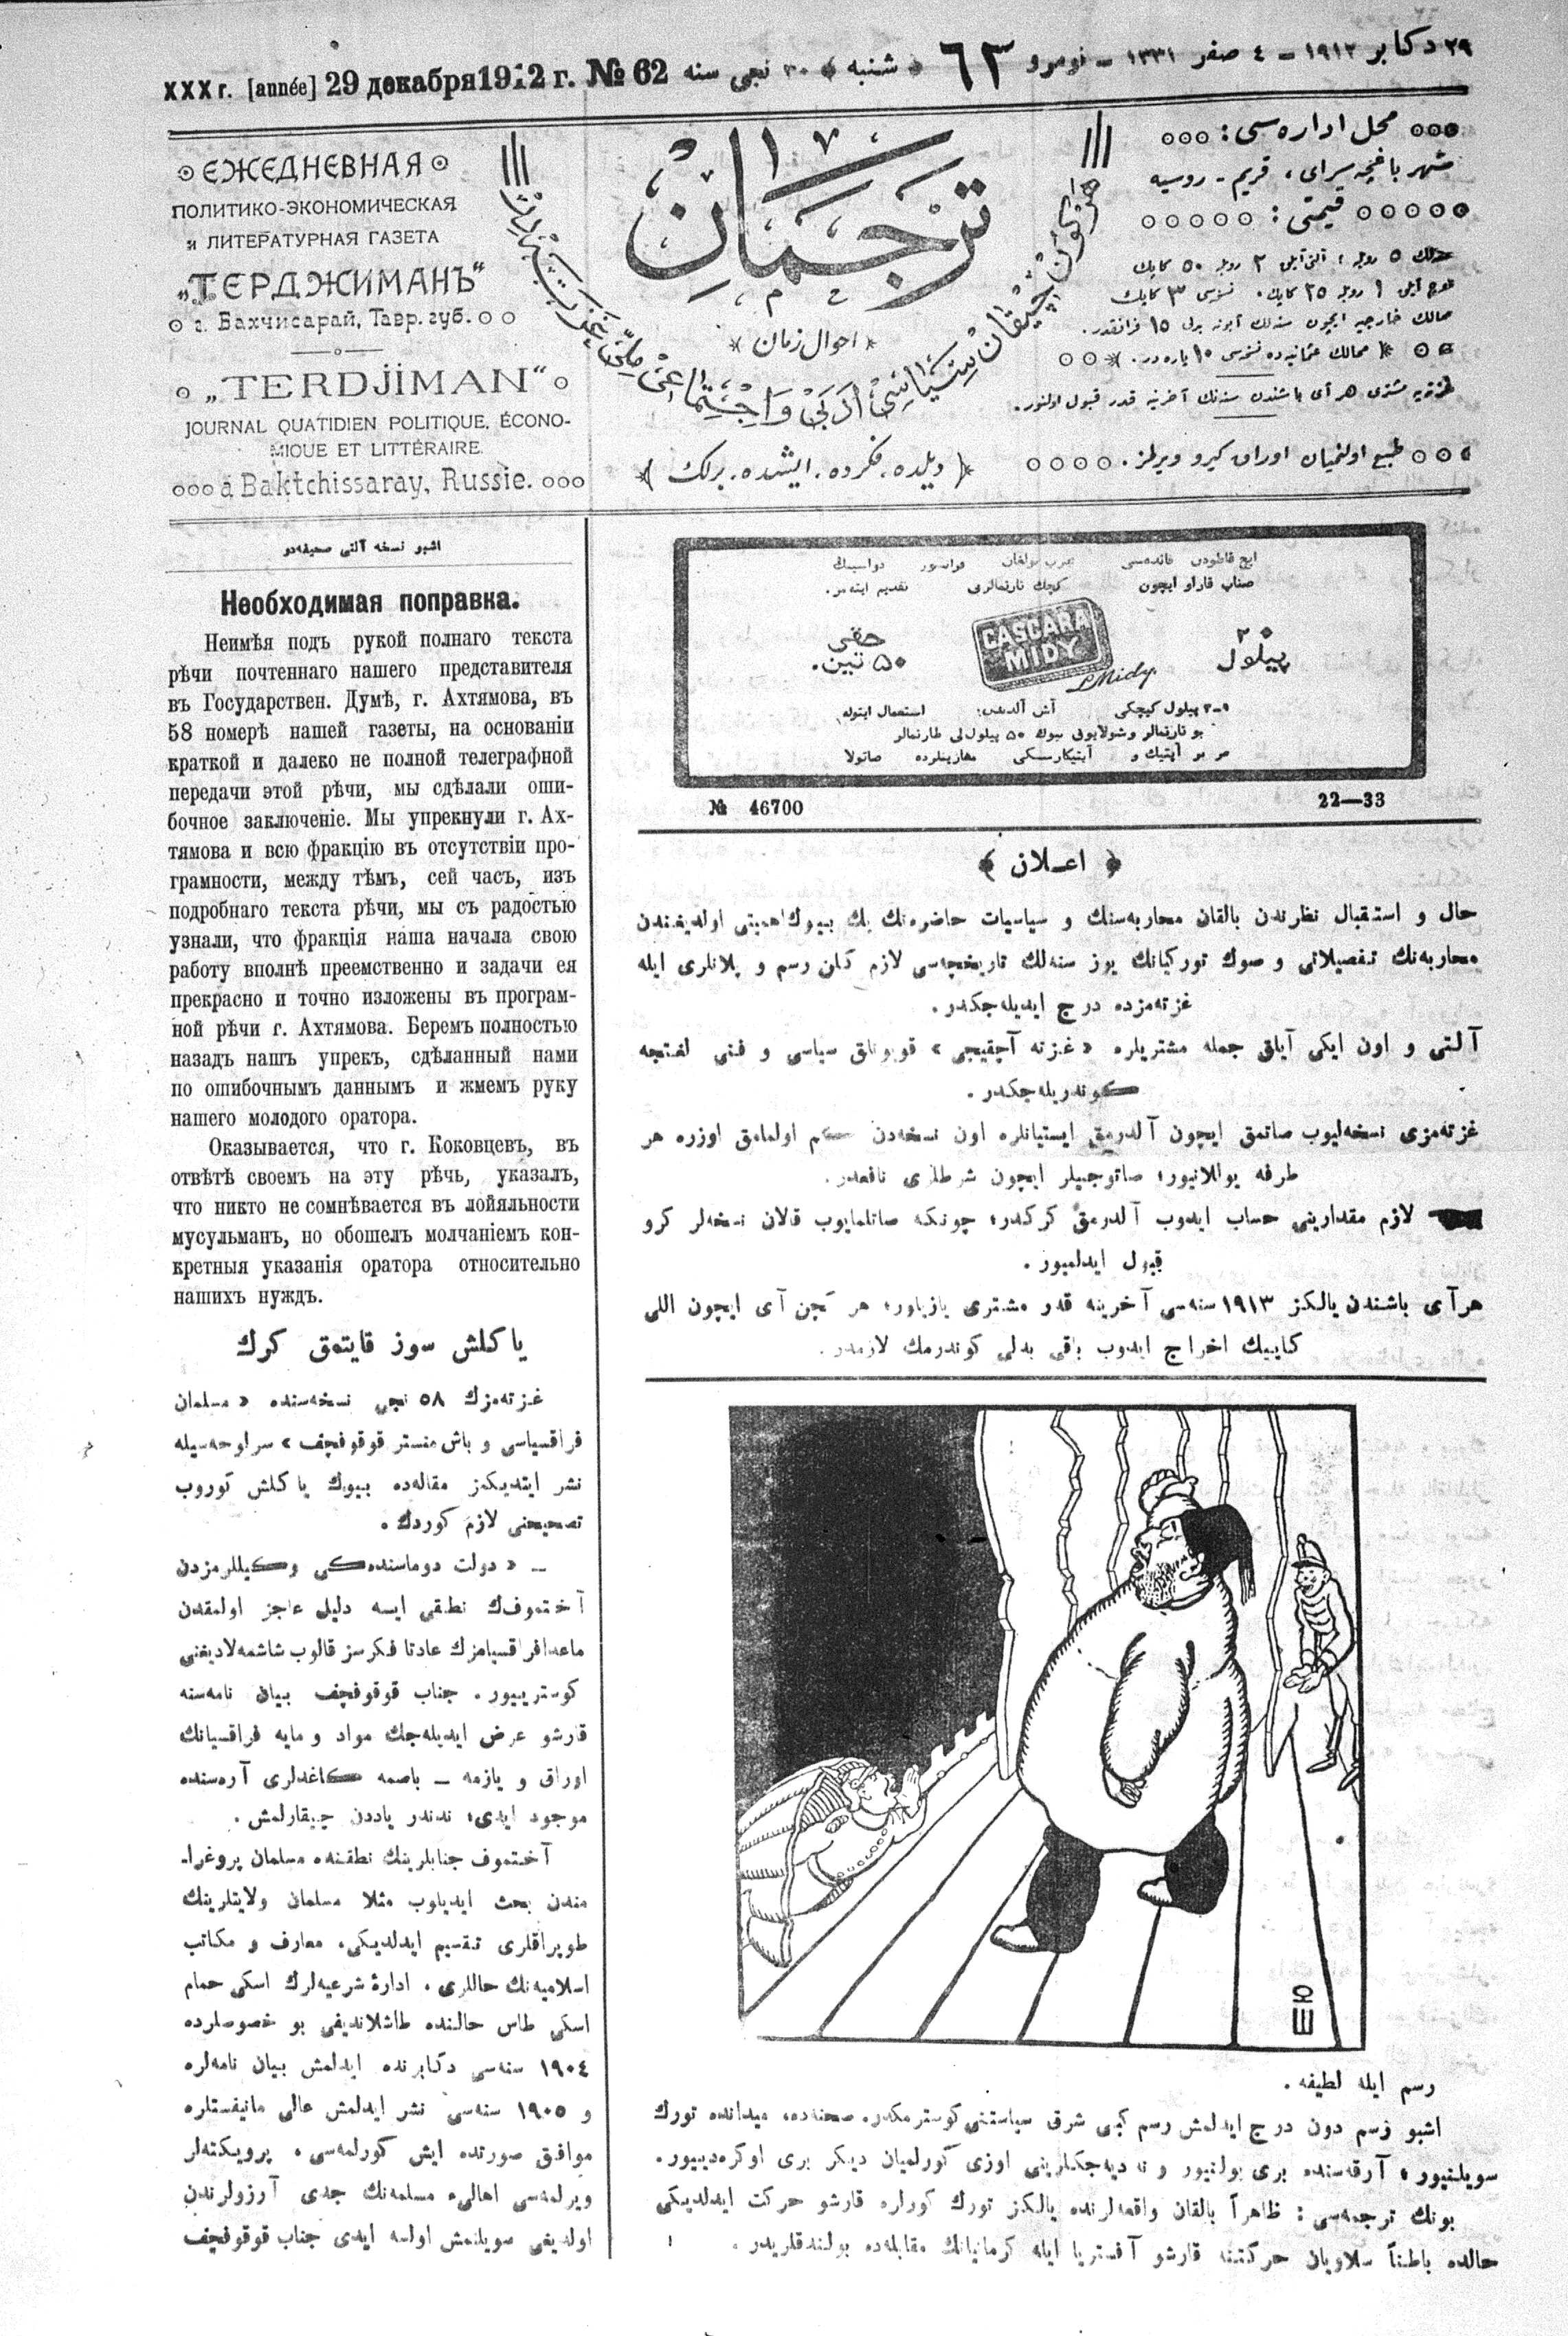 XXX г. [année] 29 декабря 1912 г. № 62 ٣٠ نجی سنه ﴿ شنبه ﴾ ٦٢ نومرو ـ ٤ صفر ١٣٣١ ـ ٢٩ دكابر ١٩١٢
ЕЖЕДНЕВНАЯ
ПОЛИТИКО-ЭКОНОМИЧЕСКАЯ
и ЛИТЕРАТУРНАЯ ГАЗЕТА
„ТЕРДЖИМАНЪ“
г. Бахчисарай, Тавр. губ.
„TERDJİMAN“
JOURNAL QUATIDIEN POLITIQUE, ÉCONO-
MIQUE ET LITTÉRAIRE.
à Baktchissaray, Russie.
ترجمان
احوال زمان
هر كون چیقان سیاسی، ادبی و اجتماعی ملی غزته در
﴿ دیلده، فكرده، ایشده، برلك ﴾
محل اداره سی:
شهر باغچه سرای، قریم ـ روسیه
قیمتی:
سنه لك ٥ روبله؛ آلتی آیلق ٢ روبله ٥٠ كاپك
اوچ آیلق ١ روبله ٢٥ كاپك. نسخه سی ٣ كاپك
ممالك خارجیه ایچون سنه لك آبونه بدلی ١٥ فرانقدر.
ممالك عثمانیه ده نسخه سی ١٠ پاره در.
غزته یه مشتری هر آی باشندن سنه نك آخرینه قدر قبول اولنور.
طبع اولنمیان اوراق كیرو ویرلمز.
اشبو نسخه آلتی صحیفه دو
Необходимая поправка.
Неимѣя подъ рукой полнаго текста
рѣчи почтеннаго нашего представителя
въ Государствен. Думѣ, г. Ахтямова, въ
58 номерѣ нашей газеты, на основаніи
краткой и далеко не полной телеграфной
передачи этой рѣчи, мы сдѣлали оши-
бочное заключеніе. Мы упрекнули г. Ах-
тямова и всю фракцію въ отсутствіи про-
грамности, между тѣмъ, сей часъ, изъ
подробнаго текста рѣчи, мы съ радостью
узнали, что фракція наша начала свою
работу вполнѣ преемственно и задачи ея
прекрасно и точно изложены въ програм-
ной рѣчи г. Ахтямова. Беремъ полностью
назадъ нашъ упрекъ, сдѣланный нами
по ошибочнымъ даннымъ и жмемъ руку
нашего молодого оратора.
Оказывается, что г. Коковцевъ, въ
отвѣтѣ своемъ на эту рѣчь, указалъ,
что никто не сомнѣвается въ лойяльности
мусульманъ, но обошелъ молчаніемъ кон-
кретныя указанія оратора относительно
нашихъ нуждъ.
یاكلش سوز قایتمق كرك
غزته مزك ٥٨ نجی نسخه سنده « مسلمان
فراقسیاسی و باش منستر قوقوفچف » سراوحه سیله
نشر ایتدیكمز مقاله ده بیوك یاكلش كوروب
تصحیحنی لازم كوردك.
ـ « دولت دوماسنده كی وكیللرمزدن
آختموفك نطقی ایسه دلیل عاجز اولمقدن
ماعدا فراقسیامزك عادتا فكرسز قالوب شاشمه لادیغنی
كوستریور. جناب قوقوفچف بیان نامه سنه
قارشو عرض ایدیله جك مواد و مایه فراقسیانك
اوراق و یازمه ـ باصمه كاغدلری آره سنده
موجود ایدی؛ نه ندر یاددن چیقارلمش.
آختموف جنابلرینك نطقنده مسلمان پروغرا ـ
مندن بحث ایدیلوب مثلا مسلمان ولایتلرینك
طوپراقلری تقسیم ایدلدیكی، معارف و مكاتب
اسلامیه نك حاللری، ادارۀ شرعیه لرك اسكی حمام
اسكی طاس حالنده طاشلاندیغی بو خصوصلرده
١٩٠٤ سنه سی دكابرنده ایدلمش بیان نامه لره
و ١٩٠٥ سنه سی نشر ایدلمش عالی مانیفستلره
موافق صورتده ایش كورلمه سی، پرویكته لر
ویرلمه سی اهالیء مسلمه نك جدی آرزولرندن
اولدیغی سویلنمش اولسه ایدی جناب قوقوفچف
ایچ قاطودن فائده سی
صناب قاراو ایچون كچك تارتمالری تقدیم ایته مز.
٢٠ پیلول
CASCARA
MIDY
L Midy.
حقی
٥٠ تین.
١ـ٢ پیلول كیچكی آش آلدندن؛ استعمال ایتوله
بو تارتمالر وشولایوق بیوك ٥٠ پیلول لی طارتمالر
هر بر آپتیك و آپتیكارسكی مغازینلرده صاتولا
№ 46700 22—33
﴿ اعلان ﴾
حال و استقبال نظرندن بالقان محاربه سنك و سیاسیات حاضره نك پك بیوك اهمیتی اولدیغندن
محاربه نك تفصیلاتی و صوك توركیانك یوز سنه لك تاریخچه سی لازم كلن رسم و پلانلری ایله
غزته مزده درج ایدیله جكدر.
آلتی و اون ایكی آیلق جمله مشتریلره « غزته آچقیجی » قویونلق سیاسی و فنی لغتچه
كوندریله جكدر.
غزته مزی نسخه لیوب صاتمق ایچون آلدرمق ایستیانلره اون نسخه دن كم اولمامق اوزره هر
طرفه یوللانیور؛ صاتوجیلر ایچون شرطلری نافعدر.
لازم مقدارینی حساب ایدوب آلدرمق كركدر؛ چونكه صاتلمایوب قالان نسخه لر كرو
قبول ایدلمیور.
هر آی باشندن یالكز ١٩١٣ سنه سی آخرینه قدر مشتری یازیلور؛ هر كچن آی ایچون اللی
كاپیك اخراج ایدوب باقی بدلی كوندرمك لازمدر.
ШЮ
رسم ایله لطیفه.
اشبو رسم دون درج ایدلمش رسم كبی شرق سیاستنی كوسترمكدر. صحنه ده، میدانده تورك
سویلنیور؛ آرقه سنده بری بولنیور و نه دیه جكلرینی اوزی كورلمیان دیكر بری اوكره دییور.
بونك ترجمه سی: ظاهراً بالقان واقعه لرنده یالكز تورك كورلره قارشو حركت ایدلدیكی
حالده باطناً سلاویان حركتنه قارشو آفستریا ایله كرمانیانك مقابله ده بولندقلریدر.